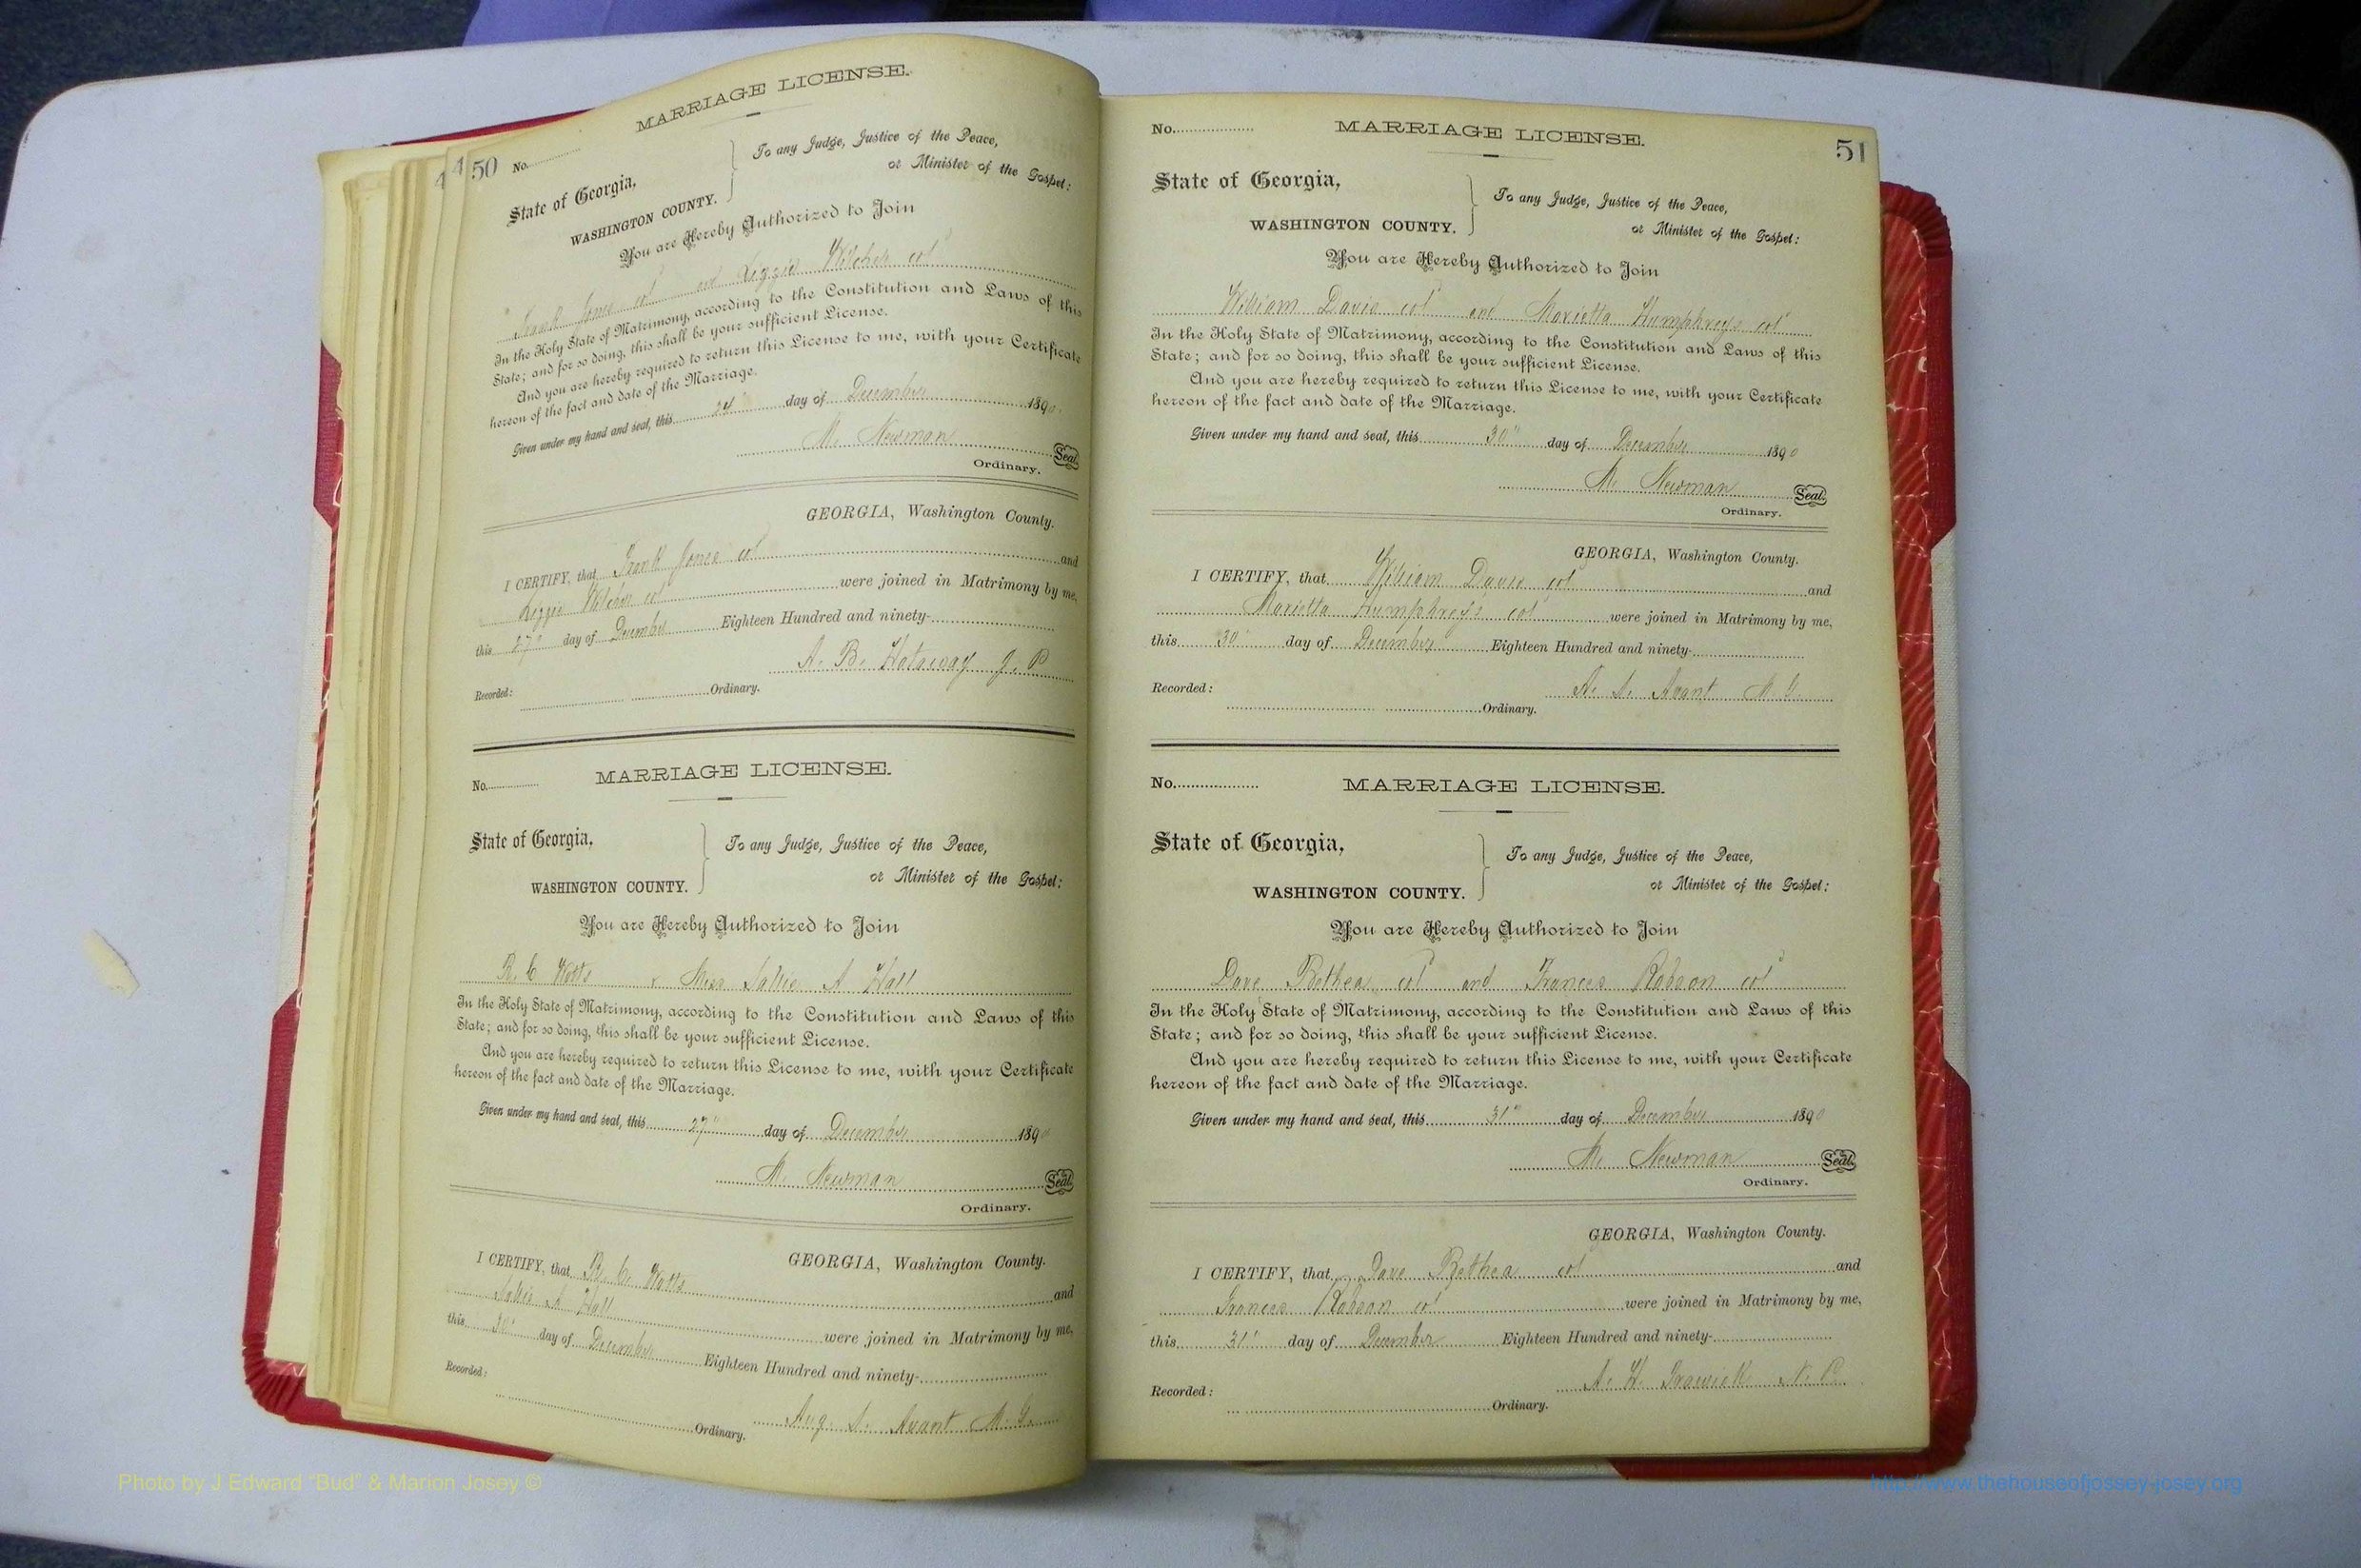 50 No.
MARRIAGE LICENSE.
State of Georgia,
WASHINGTON COUNTY.
To any Judge, Justice of the Peace,
or Minister of the Gospel:
You are Hereby Authorized to Join
Frank Jones col and Lizzie Wilcher col
In the Holy State of Matrimony, according to the Constitution and Laws of this
State; and for so doing, this shall be your sufficient License.
And you are hereby required to return this License to me, with your Certificate
hereon of the fact and date of the Marriage.
Given under my hand and seal, this 24 day of December 1890
M. Newman Seal.
Ordinary.
GEORGIA, Washington County.
I CERTIFY, that Frank Jones col and
Lizzie Wilcher col were joined in Matrimony by me,
this 27" day of December Eighteen Hundred and ninety-
A. B. Hataway J. P
Recorded: Ordinary.
No. MARRIAGE LICENSE.
State of Georgia,
WASHINGTON COUNTY.
To any Judge, Justice of the Peace,
or Minister of the Gospel:
You are Hereby Authorized to Join
R. C Watts & Miss Sallie A Hall
In the Holy State of Matrimony, according to the Constitution and Laws of this
State; and for so doing, this shall be your sufficient License.
And you are hereby required to return this License to me, with your Certificate
hereon of the fact and date of the Marriage.
Given under my hand and seal, this 27" day of December 1890
M. Newman Seal.
Ordinary.
GEORGIA, Washington County.
I CERTIFY, that R. C. Watts and
Sallie A Hall were joined in Matrimony by me,
this 30" day of December Eighteen Hundred and ninety-
Aug. S. Avant M. G.
Recorded: Ordinary.
No. MARRIAGE LICENSE. 51
State of Georgia,
WASHINGTON COUNTY.
To any Judge, Justice of the Peace,
or Minister of the Gospel:
You are Hereby Authorized to Join
William Davis col and Marietta Humphreys col
In the Holy State of Matrimony, according to the Constitution and Laws of this
State; and for so doing, this shall be your sufficient License.
And you are hereby required to return this License to me, with your Certificate
hereon of the fact and date of the Marriage.
Given under my hand and seal, this 30" day of December 1890
M. Newman Seal.
Ordinary.
GEORGIA, Washington County.
I CERTIFY, that William Davis col and
Marietta Humphreys col were joined in Matrimony by me,
this 30" day of December Eighteen Hundred and ninety-
A. S. Avant M. G.
Recorded: Ordinary.
No. MARRIAGE LICENSE.
State of Georgia,
WASHINGTON COUNTY.
To any Judge, Justice of the Peace,
or Minister of the Gospel:
You are Hereby Authorized to Join
Dave Bethea col and Frances Robson col
In the Holy State of Matrimony, according to the Constitution and Laws of this
State; and for so doing, this shall be your sufficient License.
And you are hereby required to return this License to me, with your Certificate
hereon of the fact and date of the Marriage.
Given under my hand and seal, this 31" day of December 1890
M. Newman Seal.
Ordinary.
GEORGIA, Washington County.
I CERTIFY, that Dave Bethea col and
Frances Robson col were joined in Matrimony by me,
this 31" day of December Eighteen Hundred and ninety-
A. H. Trawick N. P.
Recorded: Ordinary.
Photo by J Edward "Bud" & Marion Josey ©
http://www.thehouseofjossey-josey.org